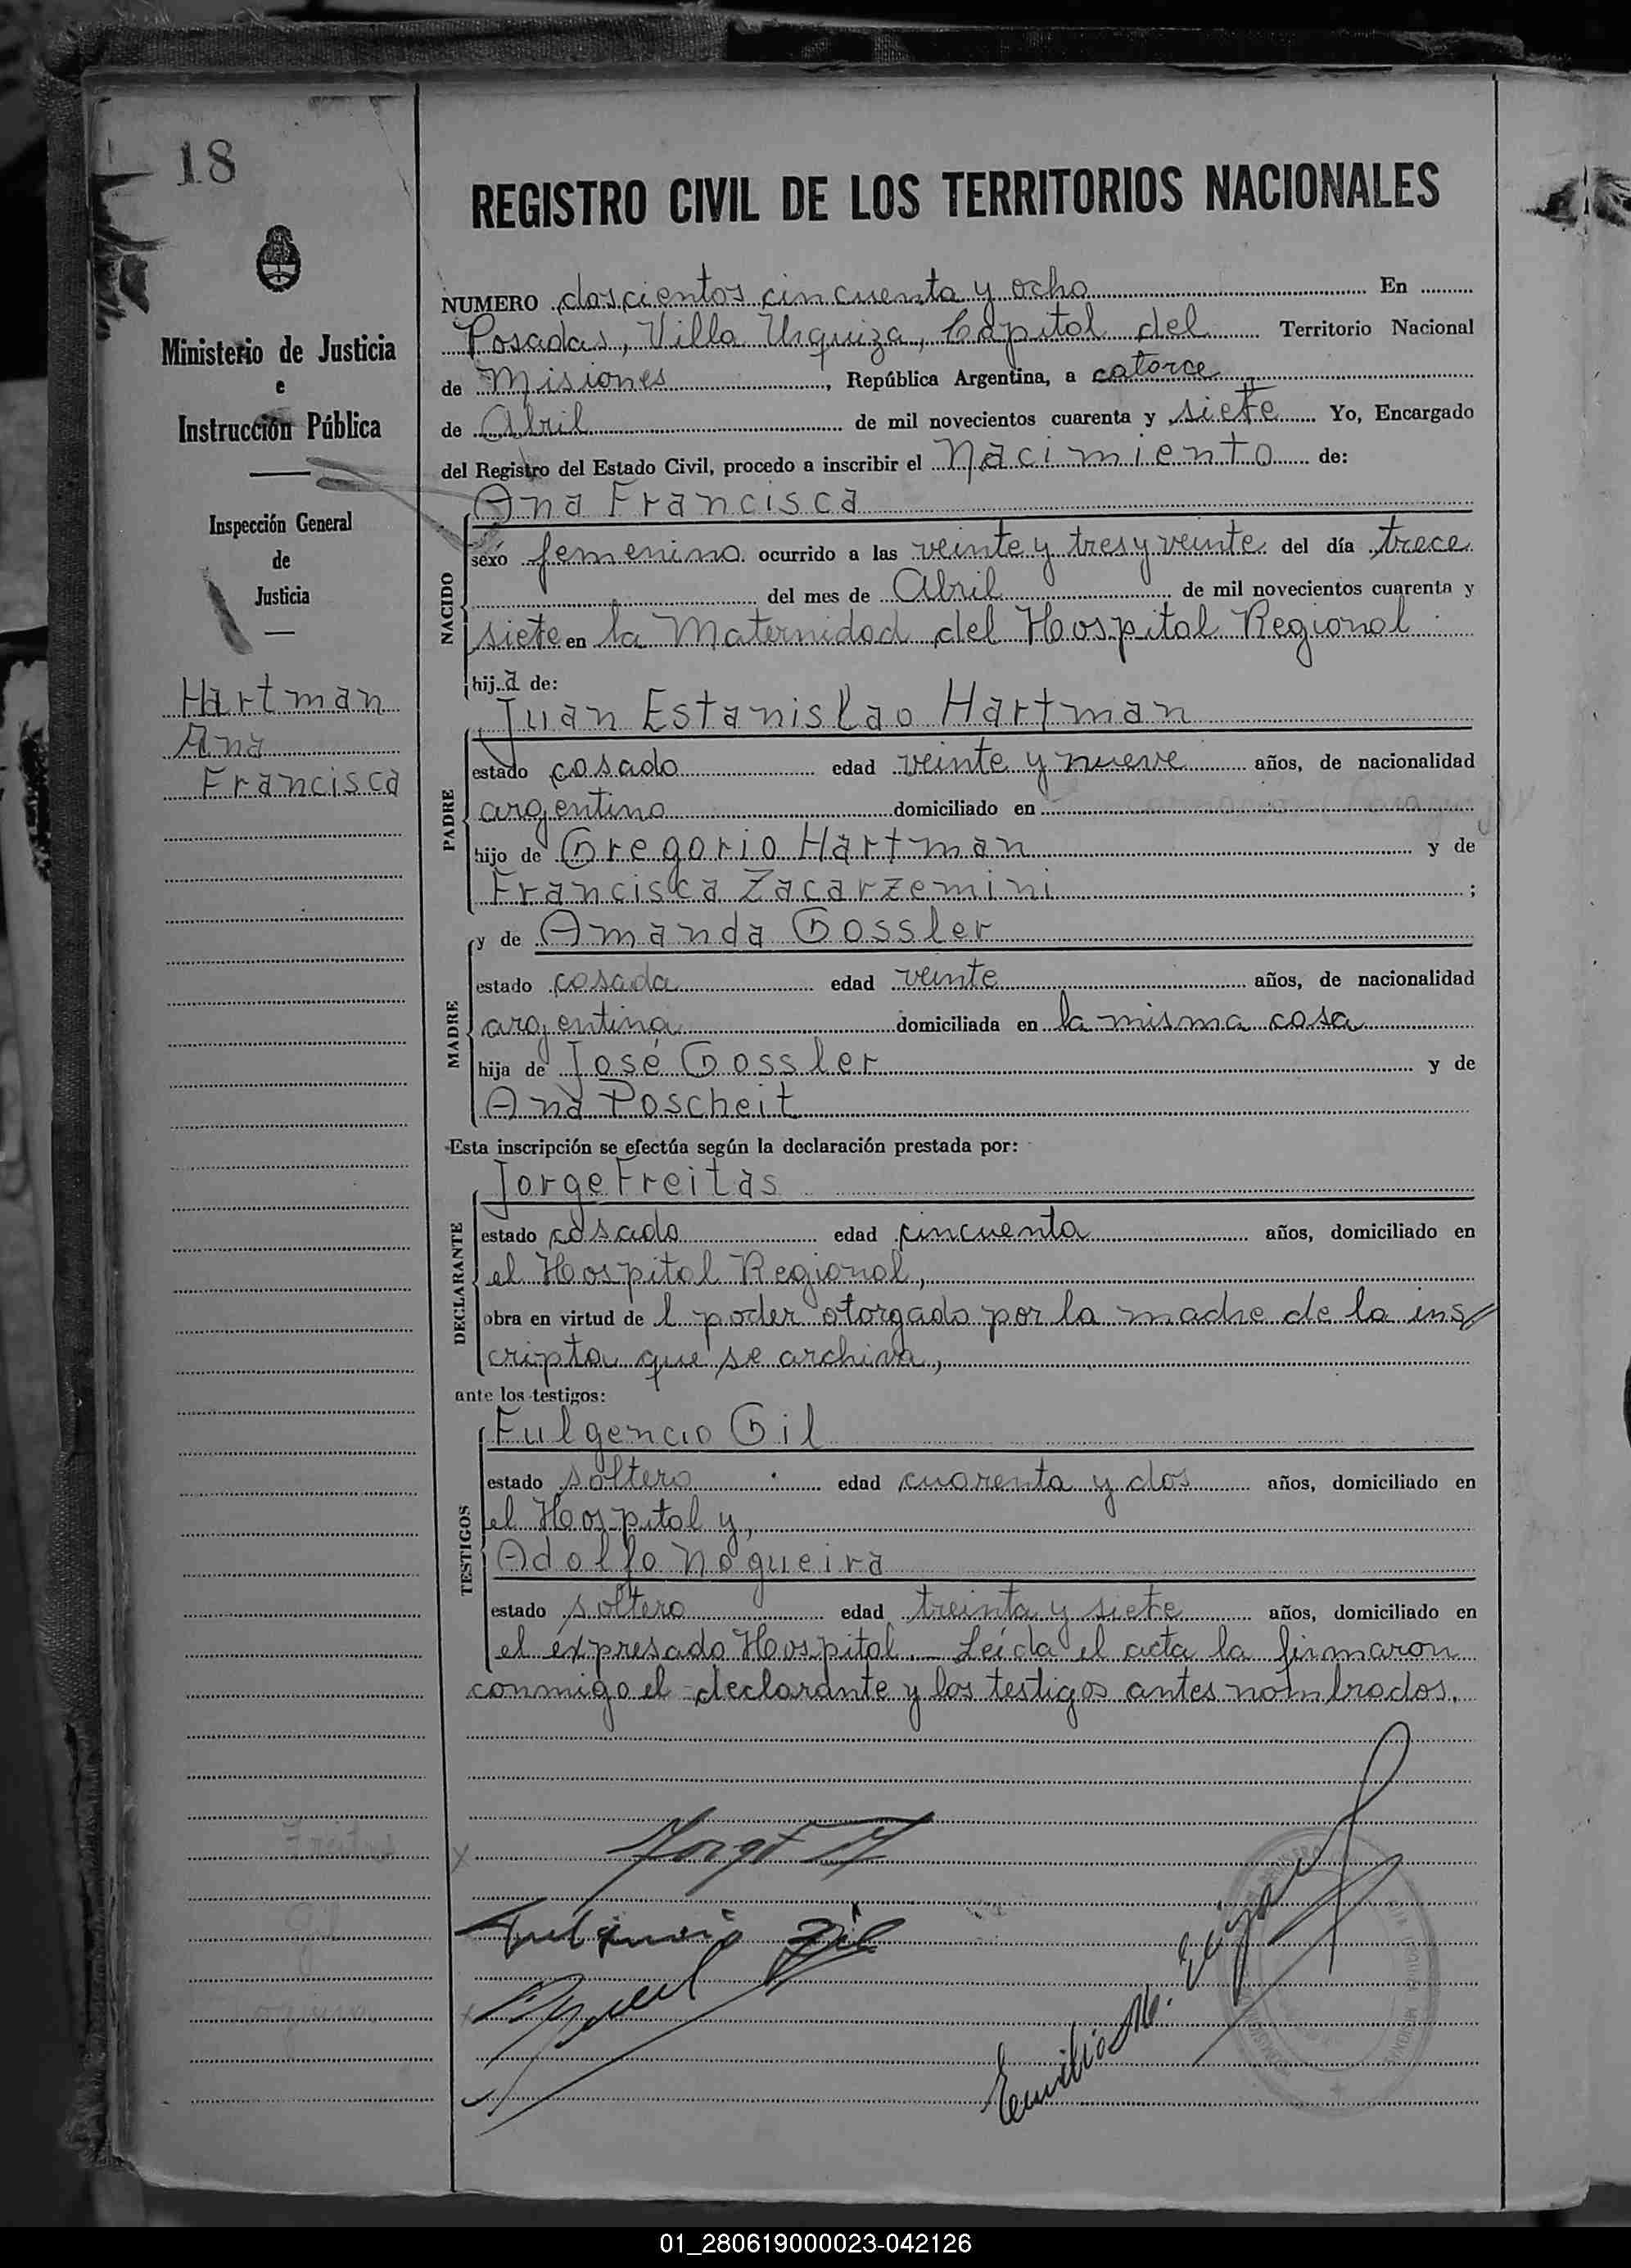 18
Ministerio de Justicia
e
Instrucción Pública
Inspección General
de
Justicia
Hartman
Ana
Francisca
REGISTRO CIVIL DE LOS TERRITORIOS NACIONALES
NUMERO doscientos cincuenta y ocho En
Posadas, Villa Urquiza, Capital del Territorio Nacional
de Misiones, República Argentina, a catorce
de Abril de mil novecientos cuarenta y siete Yo, Encargado
del Registro del Estado Civil, procedo a inscribir el Nacimiento de:
Ana Francisca
NACIDO
sexo femenino ocurrido a las veinte y tres y veinte del día trece
del mes de Abril de mil novecientos cuarenta y
siete en la Maternidad del Hospital Regional
hija de:
Juan Estanislao Hartman
PADRE
estado casado edad veinte y nueve años, de nacionalidad
argentino domiciliado en
hijo de Gregorio Hartman y de
Francisca Zacarzemini;
y de Amanda Gossler
MADRE
estado casada edad veinte años, de nacionalidad
argentina domiciliada en la misma casa
hija de José Gossler y de
Ana Poscheit
Esta inscripción se efectúa según la declaración prestada por:
Jorge Freitas
DECLARANTE
estado casado edad cincuenta años, domiciliado en
el Hospital Regional,
obra en virtud de l poder otorgado por la madre de la ins
cripta que se archiva,
ante los testigos:
Fulgencio Gil
TESTIGOS
estado soltero edad cuarenta y dos años, domiciliado en
el Hospital y,
Adolfo Nogueira
estado soltero edad treinta y siete años, domiciliado en
el expresado Hospital. Leída el acta la firmaron
conmigo el declarante y los testigos antes nombrados.
Freitas
Gil
Fulgencio Gil
Emilio M.
01_280619000023-042126